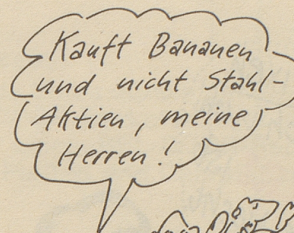 Kauft Bananen
und nicht Stahl-
Aktien, meine
Herren!